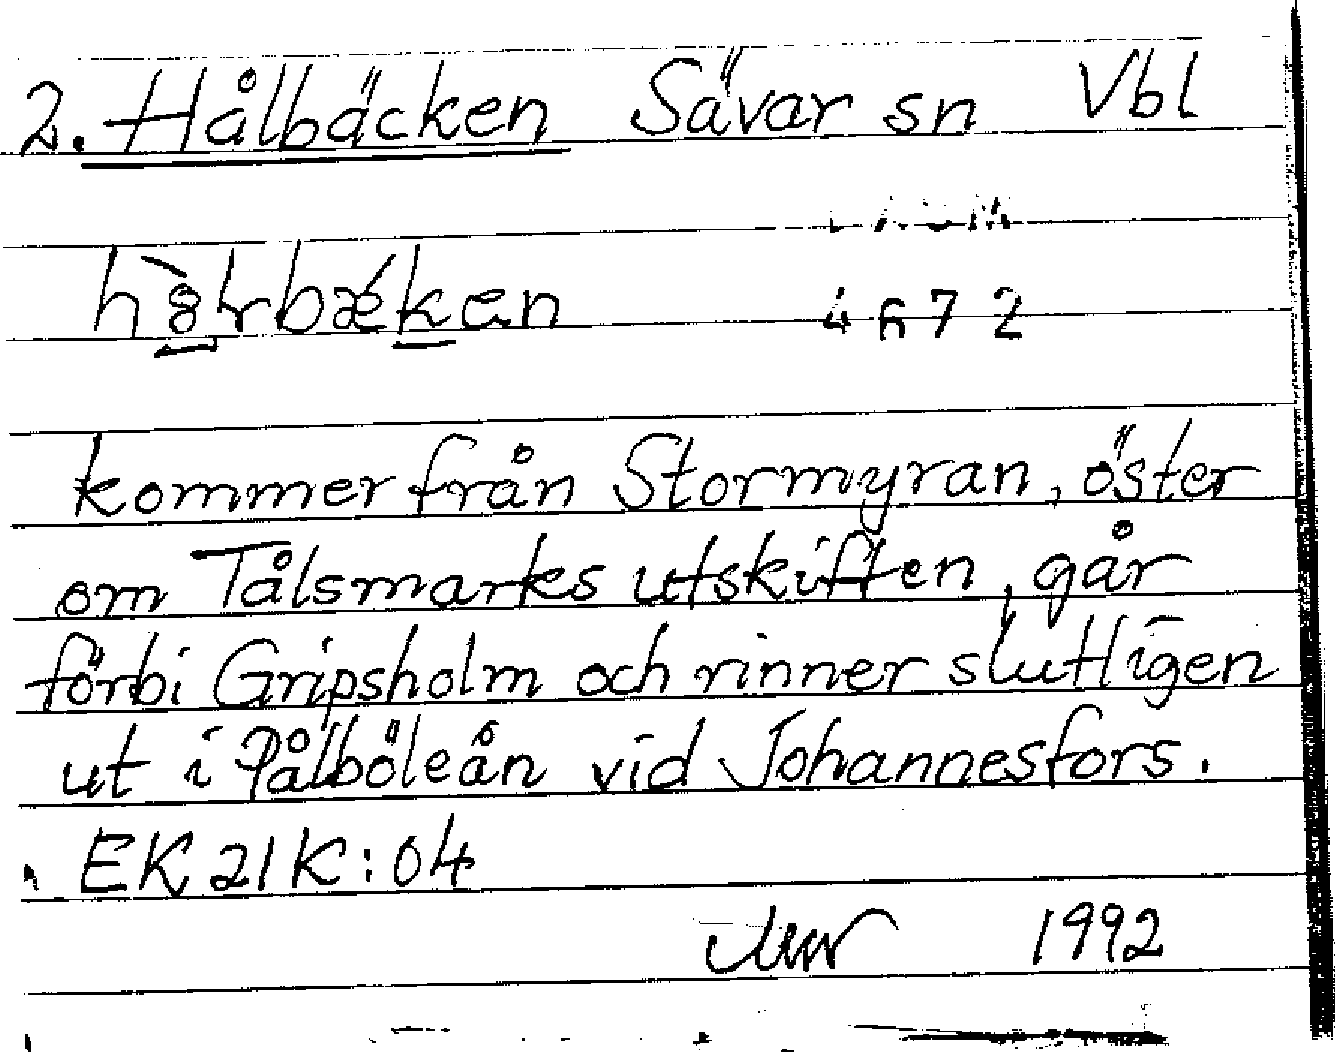 2. Hålbäcken Sävar sn Vbl
4672
kommer från Stormyran, öster
om Tålsmarks utskiften, går
förbi Gripsholm och rinner slutligen
ut i Pålböleån vid Johannesfors.
EK 21K:04
1992